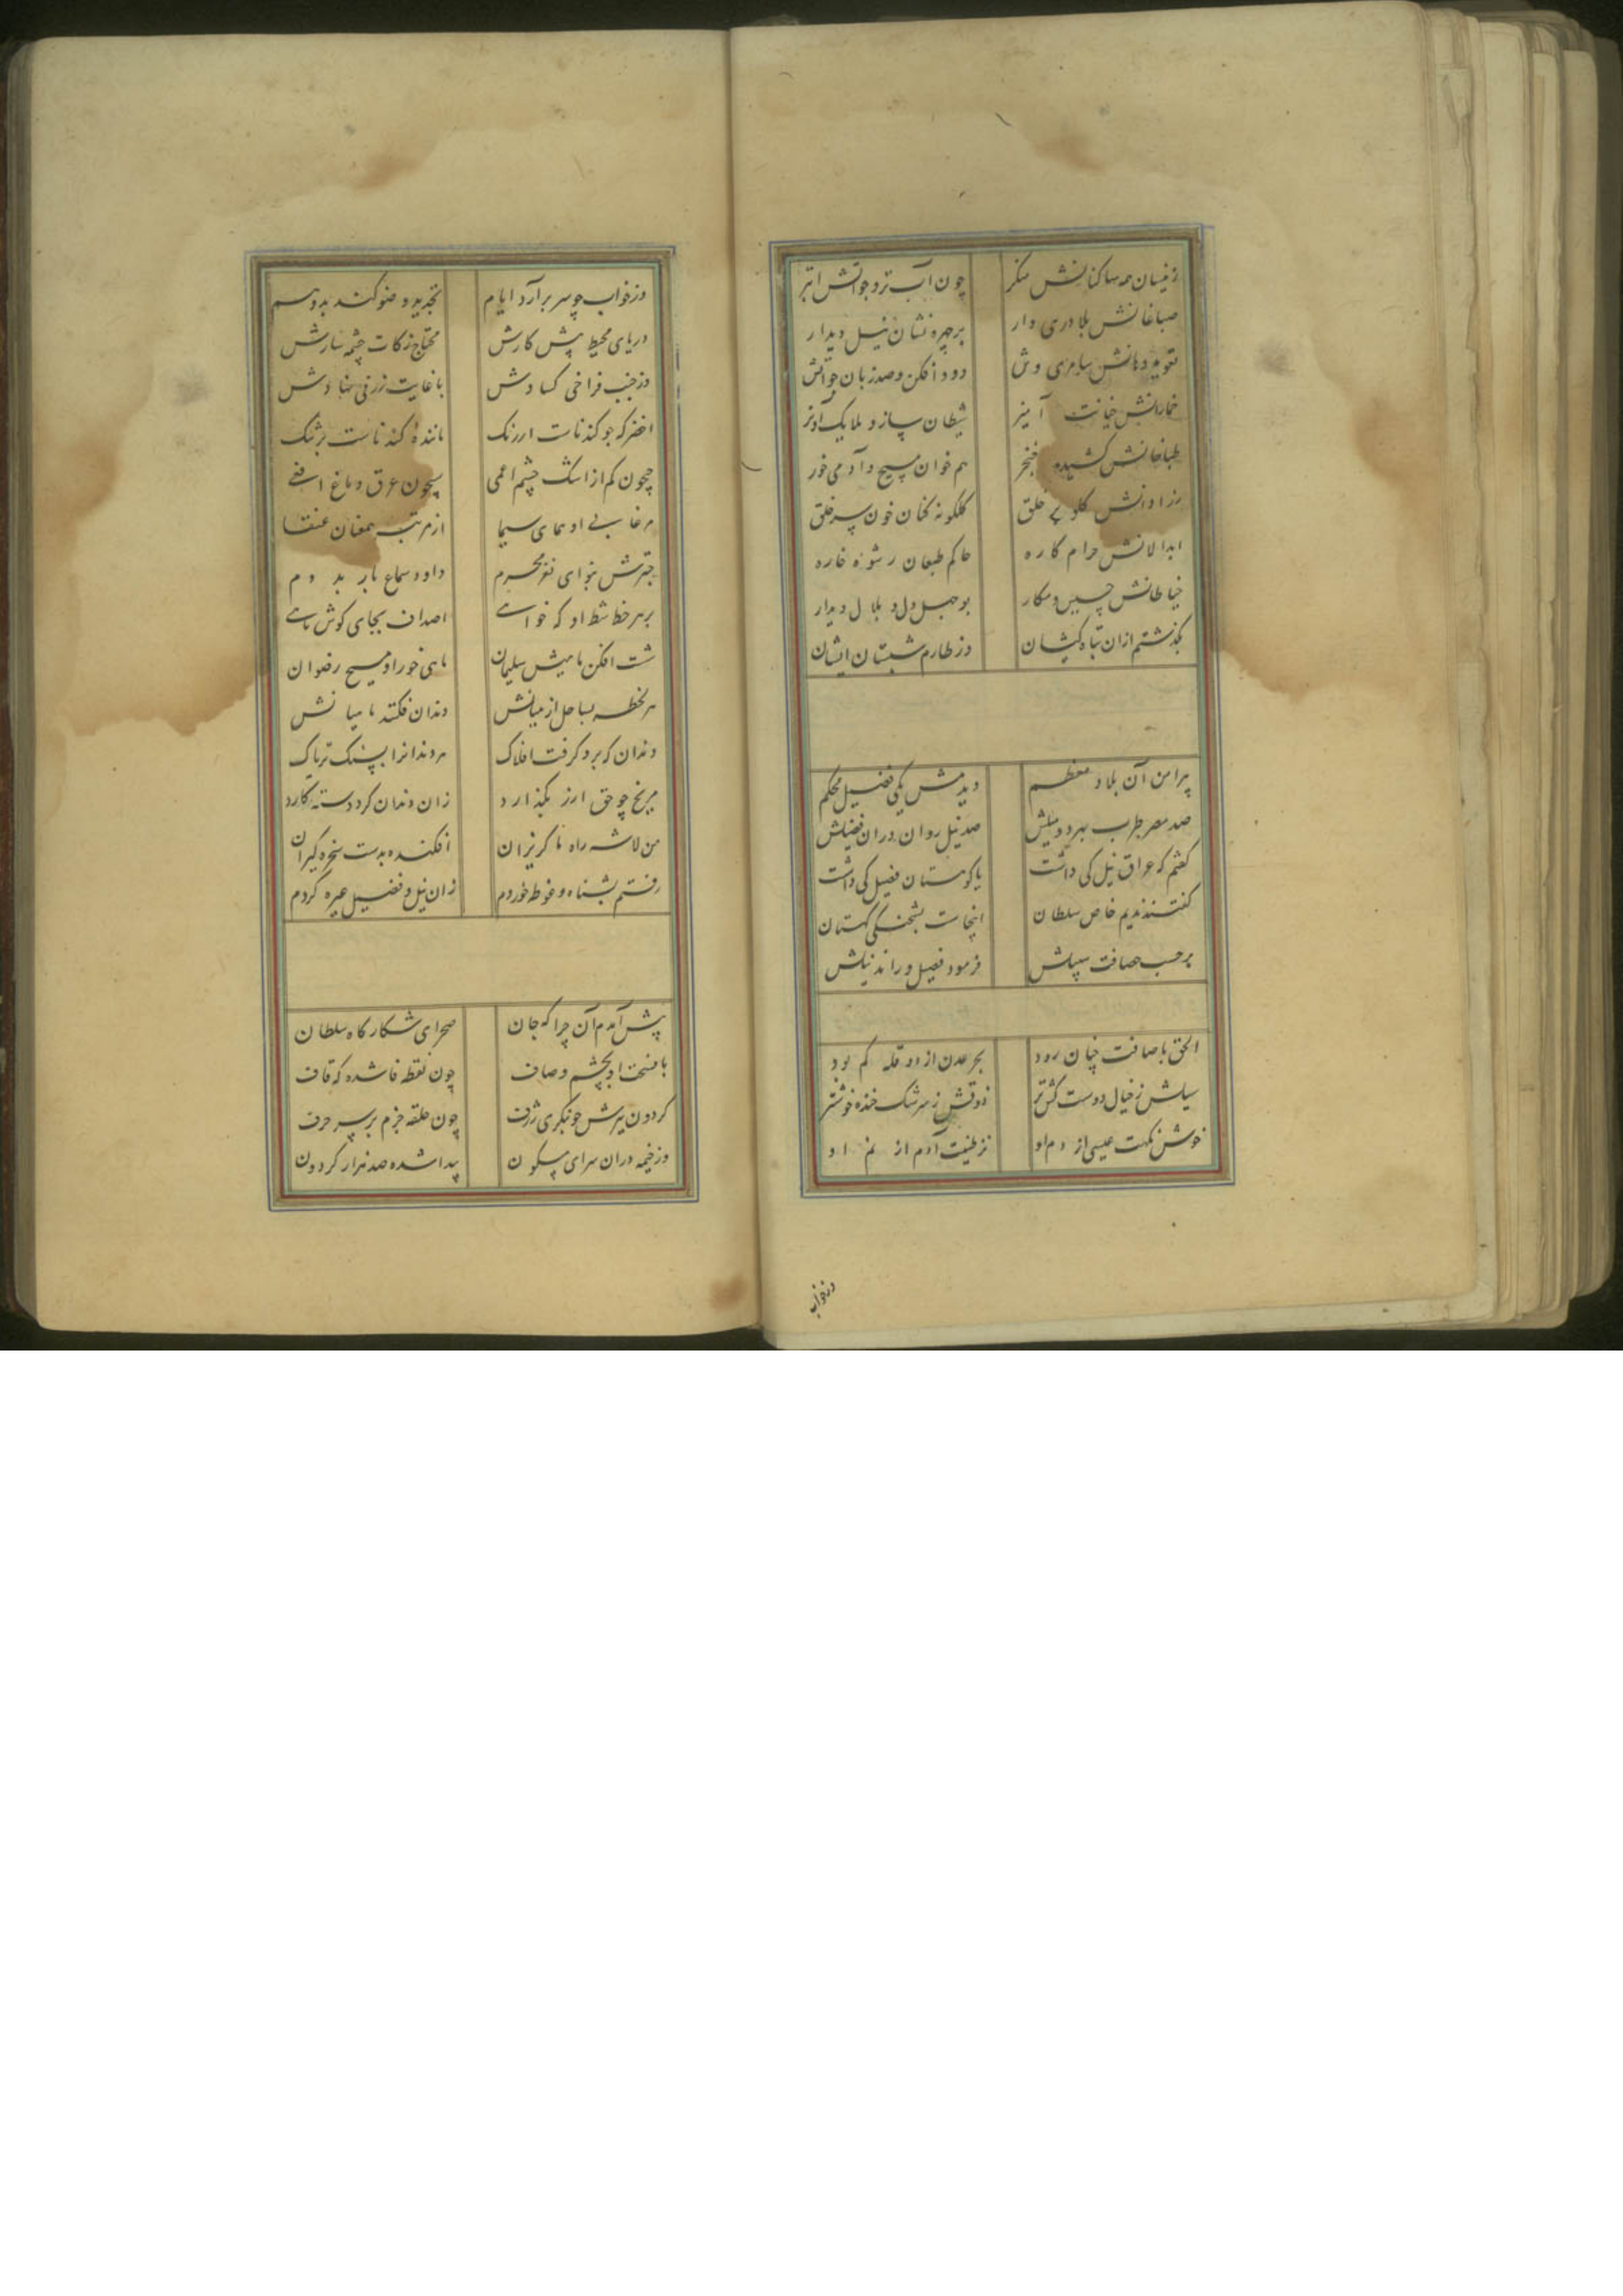 زینسان همه ساکنانش منکر چون آب تر و چو آتش ابتر
صباغانش بلادری وار بر چهره نشان نیل دیدار
تعویذ دهانش سامری وش دود افکن و صد زبان چو آتش
خمارانش خیانت آمیز شیطان ساز و ملایک آویز
طباخانش کشیده خنجر هم خوان مسیح و آدمی خور
کلوی خلق کلکونه کنان خون سر خلق
ابدالانش حرام کاره حاکم طبعان رشوه خاره
خیاطانش و مکار بوجهل دل و بلال دیدار
بکذشتم ازان تباه کیشان وز طارم شبستان ایشان
پیرامن آن بلاد معظم دیدمش یکی فصیل محکم
صد مصر طرب بهر دو میلش صد نیل روان دران فصیلش
کفتم که عراق نیل کی داشت یا کوهستان فصیل کی داشت
کفتند ندیم خاص سلطان اینجاست بشحنکی کهستان
بر حسب حصافت سپیلش فرمود فصیل و راند نیلش
الحق باصافت چنان رود بحر عدن از دو قله کم بود
سیلش ز خیال دوست کش‌تر ذوقش ز سرشک خنده خوشتر
خوش نکهت عیسی از دم او تر طینت آدم از نم او
وز خواب
وز خواب چو سر برآرد ایام تجدید وضو کند بدو
دریای محیط پیش کارش محتاج زکات چشمه سارش
وز جنب فراخی کسادش با غایت ژرفی نهادش
اخضر که جو کندناست ارزنک ماننده کندناست
جیحون کم از اشک چشم اعمی سیحون عرق دماغ افعی
مرغابی او همای سیما از مرتبه همعنان عنقا
نوای نغز محرم داود سماع باربد دم
بر هر خط شط او که خواهی اصداف بجای کوش ماهی
شست افکن ماهیش سلیمان ماهی خور او مسیح رضوان
هر لحظه بساحل از میانش دندان فکنند ماهیانش
دندان کرو کرفت افلاک هر دندانرا بسنک تریاک
مریخ چو حق ارز بکذارد زان دندان کرد دسته کارد
من لاشه راه ناکریزان افکنده بدست سخره کیران
رفتم بشناه و غوطه خوردم زان نیل و فصیل عبره کردم
پیش آمدم آن چراکه جان صحرای شکارکاه سلطان
با فسحت او بچشم وصاف چون نقطه فا شده که قاف
کردون سرش چو بنکری ژرف چون حلقه جزم بر سر حرف
وز خیمه دران سرای مسکون پیدا شده صد هزار کردون